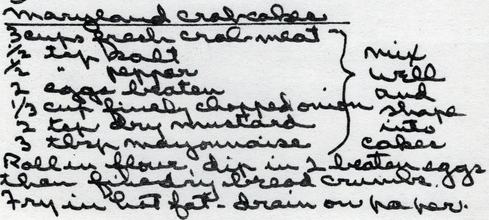 Maryland crabcakes
3 cups fresh crab-meat
1/2 tsp salt
1/2 " pepper
2 eggs beaten
1/3 cup finely chopped onion
2 tsp dry mustard
3 tbsp mayonnaise
mix
well
and
shape
into
cakes
Roll in flour, dip in 2 beaten eggs
then fine dry bread crumbs.
Fry in hot fat - drain on paper.